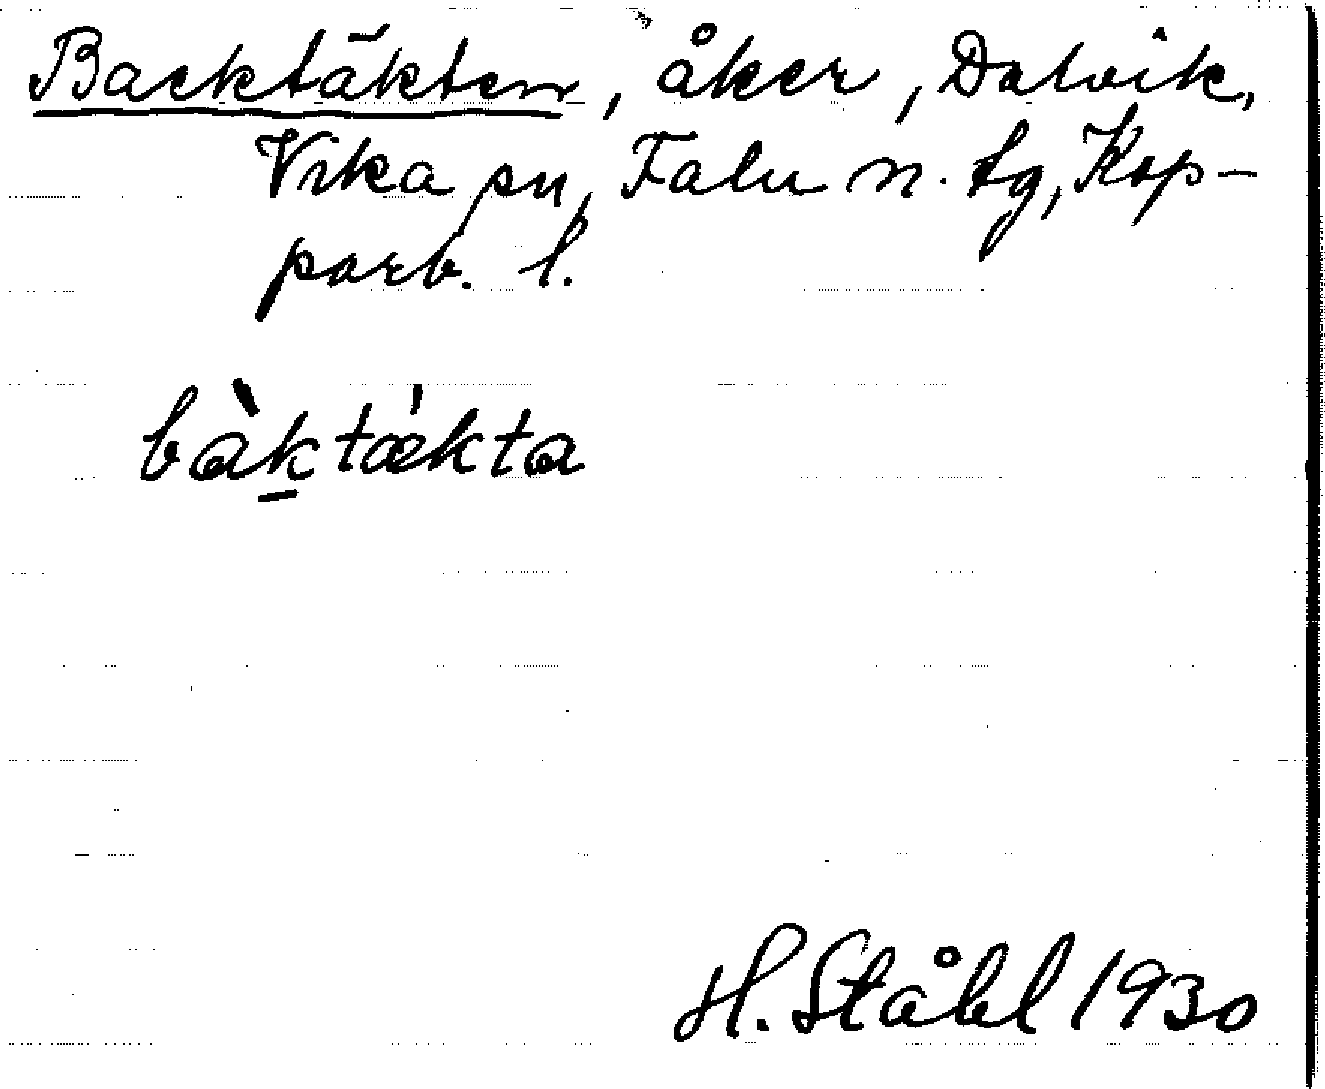 Backtäkten, åker, Dalvik,
Vika sn, Falu n. tg, Kop-
parb. l.
bàktækta
H. Ståhl 1930